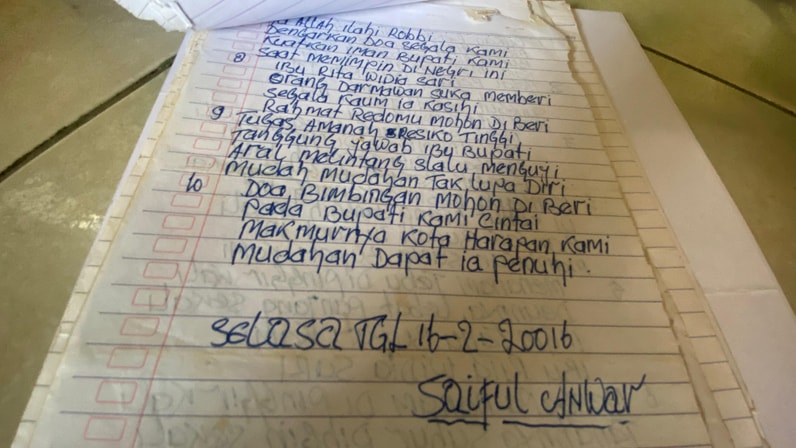 Ya ALLAH ilahi Robbi
Dengarkan Doa segala kami
Kuatkan iman Bupati kami
8 Saat memimpin Di Negri ini
ibu Rita Widia sari
Orang Darmawan suka memberi
segala kaum ia kasihi
Rahmat Redomu mohon Di Beri
9 Tugas Amanah Resiko Tinggi
Tanggung yawab ibu Bupati
Aral melintang slalu menguyi
Mudah mudahan Tak lupa Diri
10 Doa Bimbingan mohon Di Beri
pada Bupati kami cintai
Makmurnya kota Harapan kami
Mudahan Dapat ia penuhi.
Selasa TGL 16-2-20016
Saiful Anwar